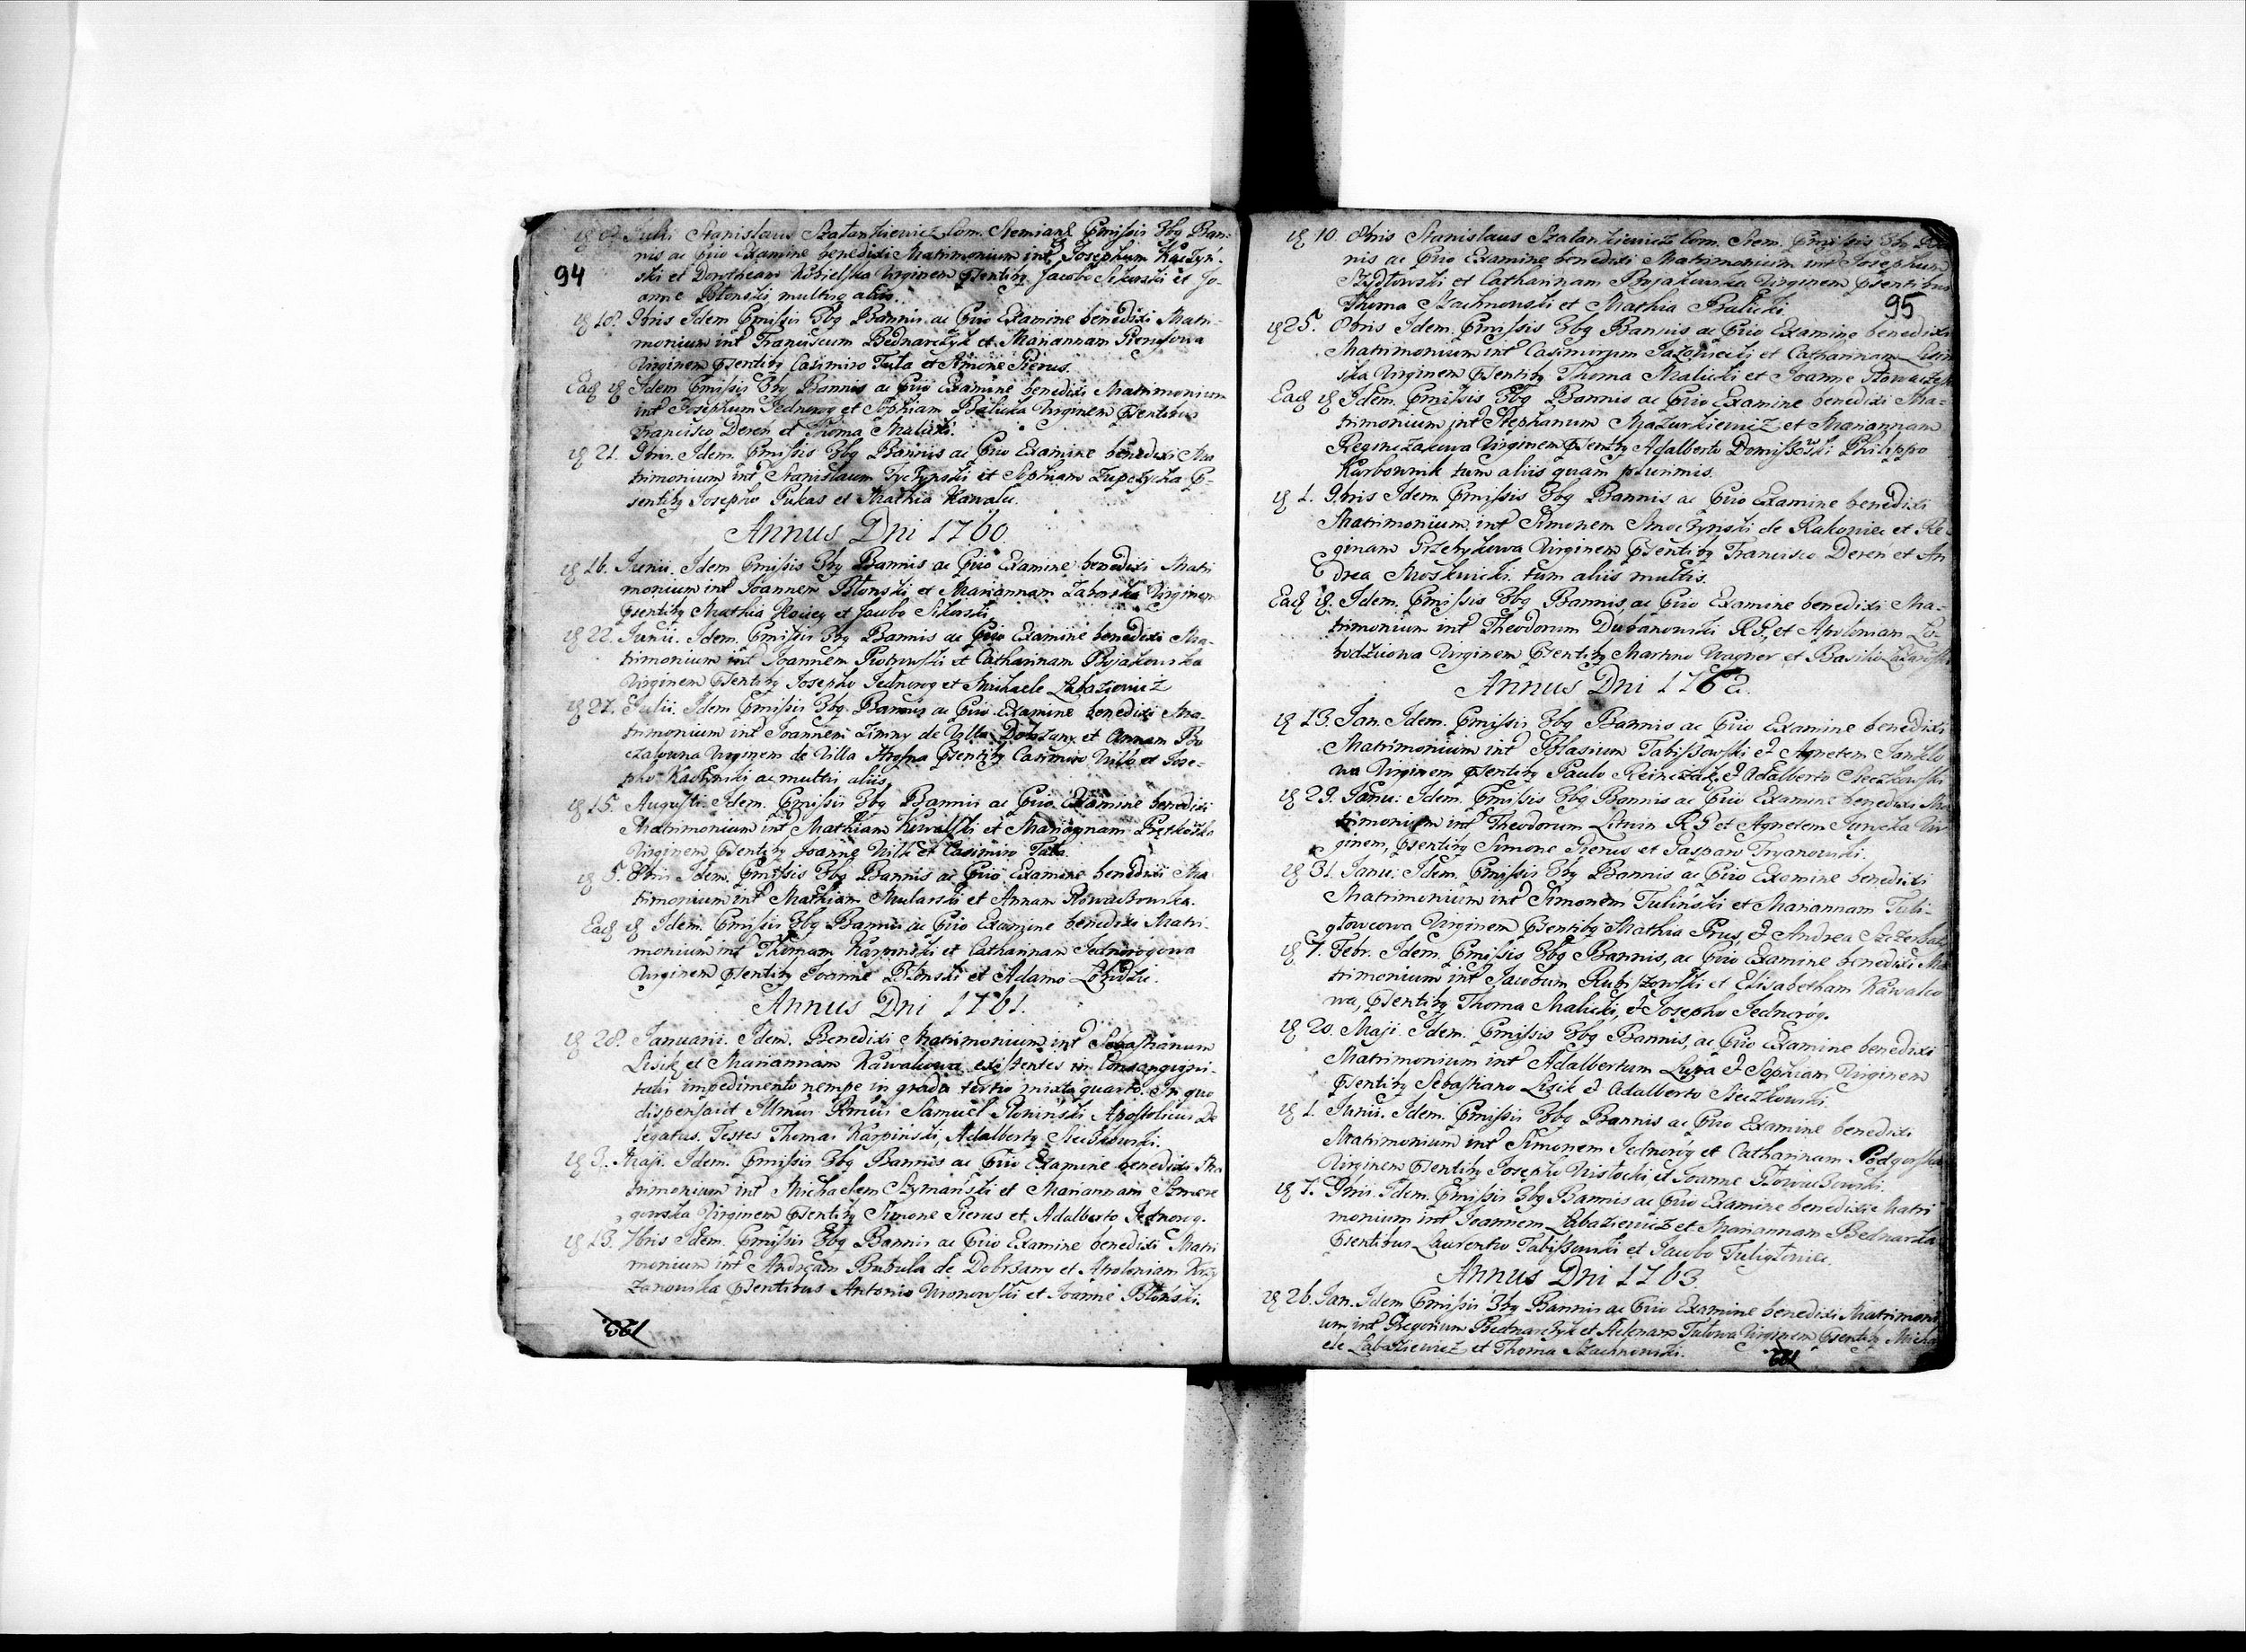 94
Julii Stanislaus Szatankiewicz Com. Stemians Pmissis 3bq Ban-
nis ac Pvio Examine benedixi Matrimonium int Josephum Kaczyn-
ski et Dorotheam Kobielska Virginem Psentibq Jacobo Sikorski et Jo-
anne Blonski multisq aliis.
18. 9bris Idem Pmissis 3bq Bannis ac Pvio Examine benedixi Matri-
monium int Franciscum Bednarczyk et Mariannam Pierusowa
Virginem Psentibq Casimiro Tuta et Simone Pierus.
Eadq Idem Pmissis 3bq Bannis ac Pvio Examine benedixi Matrimonium
int Josephum Jednorog et Sophiam Balicka Virginem Psentibus
Francisco Deren et Thoma Malicki.
21. 9bris. Idem Pmissis 3bq Bannis ac Pvio Examine benedixi Ma
trimonium int Stanislaum Tyczynski et Sophiam Zupczycha P-
sentibq Josepho Pukas et Mathia Kawalec.
Annus Dni 1760.
16. Junii. Idem Pmissis 3bq Bannis ac Pvio Examine benedixi Matri
monium int Joannem Blonski et Mariannam Zaborska Virginem
Psentibq Mathia et Jacobo Sikorski.
22. Junii. Idem. Pmissis 3bq Bannis ac Pvio Examine benedixi Ma-
trimonium int Joannem Piotrowski et Catharinam Bojakowska
Virginem Psentibq Josepho Jednorog et Michaele Labaziewicz
27. Julii. Idem Pmissis 3bq Bannis ac Pvio Examine benedixi Ma-
trimonium int Joannem Zimny de Villa Dobrzany et Annam Bo
czalowna Virginem de Villa Psentibq Casimiro Wilk et Jose-
pho Kaczynski ac multis aliis.
15. Augusti. Idem. Pmissis 3bq Bannis ac Pvio Examine benedixi
Matrimonium int Mathiam Kowalski et Mariannam
Virginem Psentibq Joanne Wilk et Casimiro Tuta.
5. 8bris Idem. Pmissis 3bq Bannis ac Pvio Examine benedixi Ma
trimonium int Mathiam Mularski et Annam Slowaczowska.
Eadq Idem Pmissis 3bq Bannis ac Pvio Examine benedixi Matri-
monium int Thomam Karpinski et Catharinam Jednorogowa
Virginem Psentibq Joanne Blonski et Adamo
Annus Dni 1761.
28. Januarii. Idem. Benedixi Matrimonium int Sebastianum
Lisik et Mariannam Kawalcowa existentes in Consanguini-
tatis impedimento nempe in gradu tertio mixto quarto. In quo
dispensavit Illmus Rmus Samuel Glowinski Apostolicus De
legatus. Testes Thomas Karpinski, Adalbertq Sieczkowski.
3. Maji. Idem. Pmissis 3bq Bannis ac Pvio Examine benedixi Ma
trimonium int Michaelem Szymanski et Mariannam Smere
gowska Virginem Psentibq Simone Pierus et Adalberto Jednorog.
13. 7bris Idem. Pmissis 3bq Bannis ac Pvio Examine benedixi Matri
monium int Andream Bubula de Dobrzany et Apoloniam Krzy
zanowska Psentibus Antonio Wronowski et Joanne Blonski.
10. 8bris Stanislaus Szatankiewicz Com. Stem. Pmissis 3bq Ban
nis ac Pvio Examine benedixi Matrimonium int Josephum
Szydlowski et Catharinam Bojakowska Virginem Psentibus
Thoma Szachnowski et Mathia Balicki.
95
25. 8bris Idem. Pmissis 3bq Bannis ac Pvio Examine benedixi
Matrimonium int Casimirum Jazowiecki et Catharinam Lisin
ska Virginem Psentibq Thoma Malicki et Joanne Slowaczek
Eadq Idem. Pmissis 3bq Bannis ac Pvio Examine benedixi Ma-
trimonium int Stephanum Mazurkiewicz et Mariannam
Reginczakowa Virginem Psentibq Adalberto Domiszewski Philippo
Karbownik tum aliis quam plurimis.
1. 9bris Idem. Pmissis 3bq Bannis ac Pvio Examine benedixi
Matrimonium int Simonem Smoczynski de Rakowiec et Re-
ginam Grzebykowa Virginem Psentibq Francisco Deren et An
drea Moskwicki tum aliis multis.
Eadq Idem. Pmissis 3bq Bannis, ac Pvio Examine benedixi Ma-
trimonium int Theodorum Dubanowski RG, et Apoloniam
Virginem Psentibq Martino Wagner et Basilio
Annus Dni 1762.
13. Jan. Idem. Pmissis 3bq Bannis ac Pvio Examine benedixi
Matrimonium int Blasium Tabiszowski et Agnetem Janklo
wa Virginem Psentibq Paulo Reinczak et Adalberto Sieczkowski
29. Janu: Idem. Pmissis 3bq Bannis ac Pvio Examine benedixi Ma
trimonium int Theodorum Litwin RG et Agnetem Vir
ginem, Psentibq Simone Pierus et Gasparo Tryanowski.
31. Janu: Idem. Pmissis 3bq Bannis ac Pvio Examine benedixi
Matrimonium int Simonem Tulinski et Mariannam Tuli-
glowcowa Virginem Psentibq Mathia Prus, et Andrea
7. Febr. Idem. Pmissis 3bq Bannis, ac Pvio Examine benedixi Ma
trimonium int Jacobum Rubiszowski et Elisabetham Kawalco
wa, Psentibq Thoma Malicki, et Josepho Jednoróg.
20. Maji. Idem. Pmissis 3bq Bannis, ac Pvio Examine benedixi
Matrimonium int Adalbertum et Sophiam Virginem
Psentibq Sebastiano Lisik et Adalberto Sieczkowski
1. Junii. Idem. Pmissis 3bq Bannis ac Pvio Examine benedixi
Matrimonium int Simonem Jednoróg et Catharinam Podgorska
Virginem Psentibq Josepho Wislocki et Joanne Slowaczowski.
7. 9bris. Idem. Pmissis 3bq Bannis ac Pvio Examine benedixi Matri
monium int Joannem Labaziewicz et Mariannam Bednarska
Psentibus Laurentio Tabiszowski et Jacobo Tuliglowiec.
Annus Dni 1763
26. Jan. Idem Pmissis 3bq Bannis ac Pvio Examine benedixi Matrimoni
um int Gregorium Bednarczyk et Helenam Tutowa Virginem Psentibq Micha
ele Labaziewicz et Thoma Szachnowski.